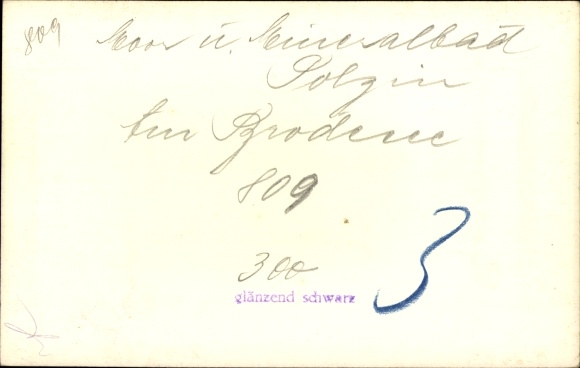 809
Moor u. Mineralbad
Polzin
Am Brodsee
809
300
glänzend schwarz
3